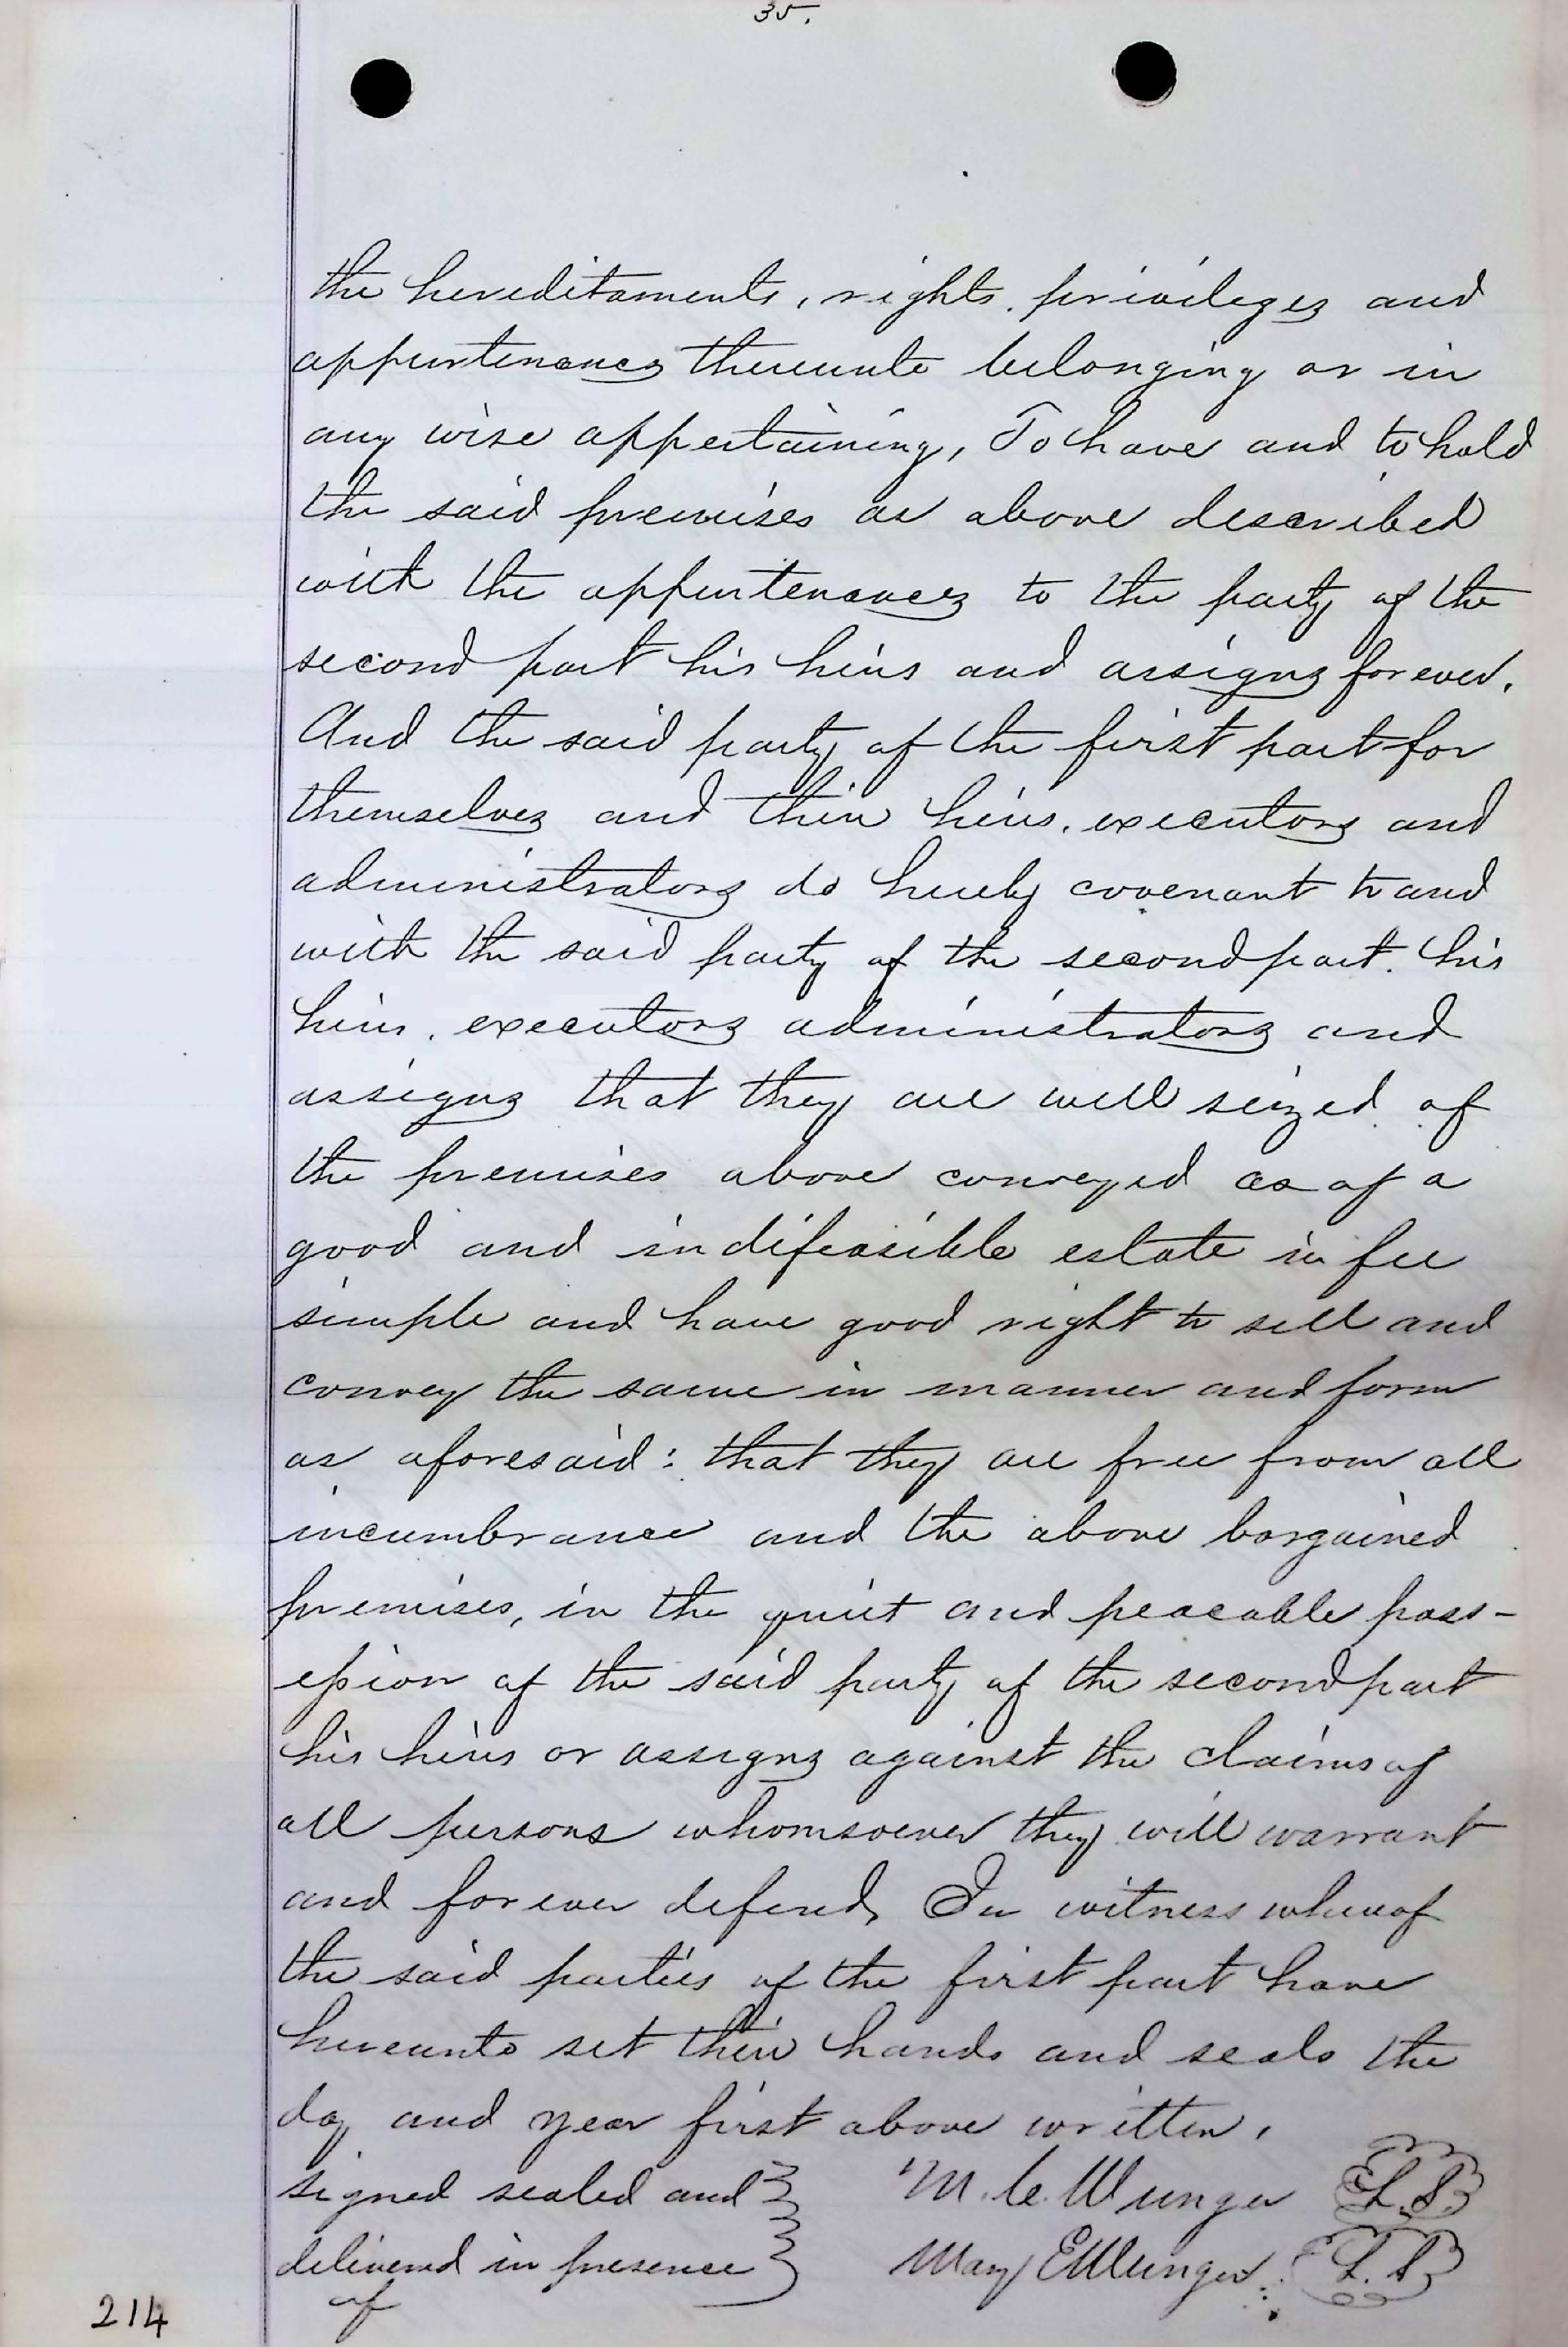 35.
the hereditaments, rights, privileges and
appurtenances thereunto belonging or in
any wise appertaining, To have and to hold
the said premises as above described
with the appurtenances to the party of the
second part his heirs and assigns forever.
And the said party of the first part for
themselves and their heirs, executors and
administrators do hereby covenant to and
with the said party of the second part. his
heirs, executors administrators and
assigns that they are well seized of
the premises above conveyed as of a
good and indifeasible estate in fee
simple and have good right to sell and
convey the same in manner and form
as aforesaid: that they are free from all
incumbrance and the above bargained
premises, in the quiet and peaceable poss-
ession of the said party of the second part
his heirs or assigns against the claims of
all persons whomsoever they will warrant
and forever defend, In witness whereof
the said parties of the first part have
hereunto set their hands and seals the
day and year first above written,
signed sealed and M. C. Munger L.S.
delivered in presence Mary E Munger L.S
of
214